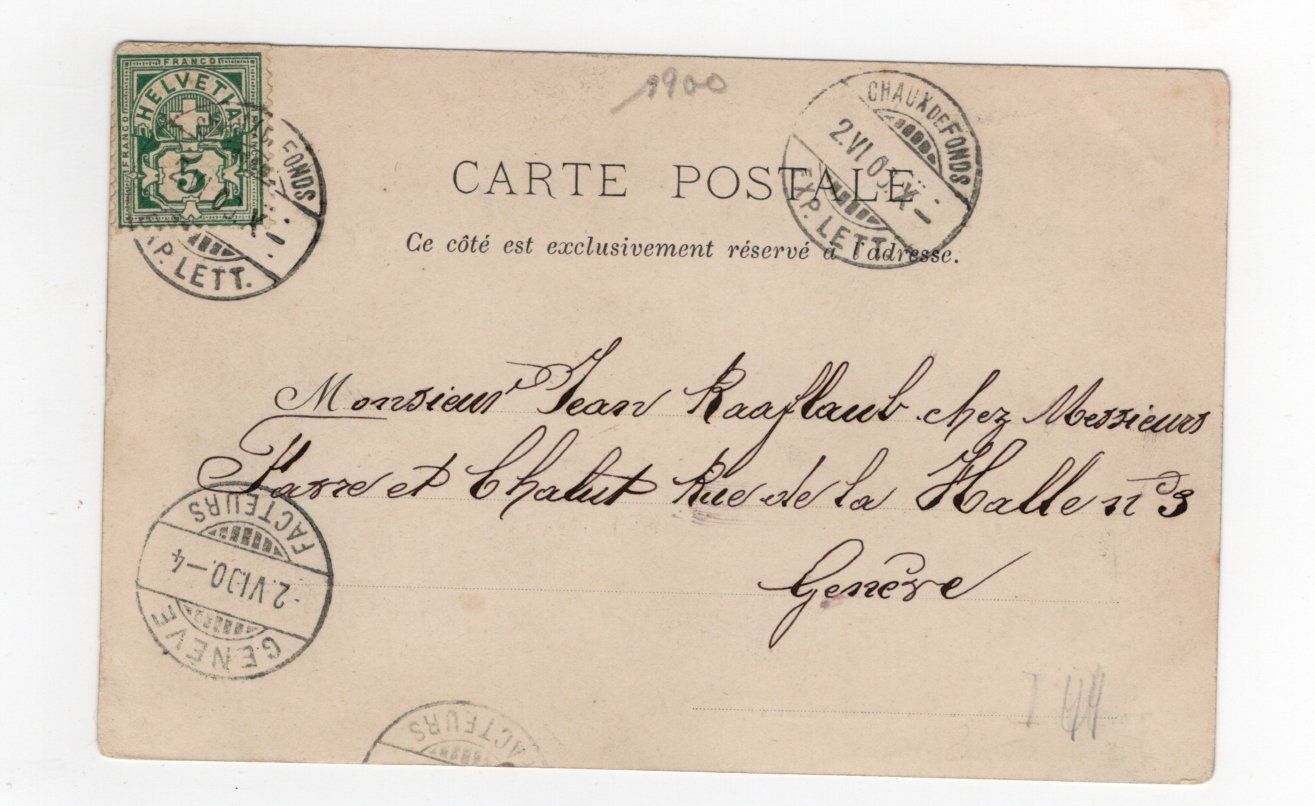 1900
FRANCO
FRANCO
HELVETIA
5
FONDS
XP. LETT.
CHAUX DE FONDS
2.VI.00.X-
XP. LETT.
CARTE POSTALE
Ce côté est exclusivement réservé à l'adresse.
Monsieur Jean Raaflaub chez Messieurs
et Chalut Rue de la Halle n° 3
Genève
FACTEURS
2.VI.00-4
GENÈVE
FACTEURS
I 44